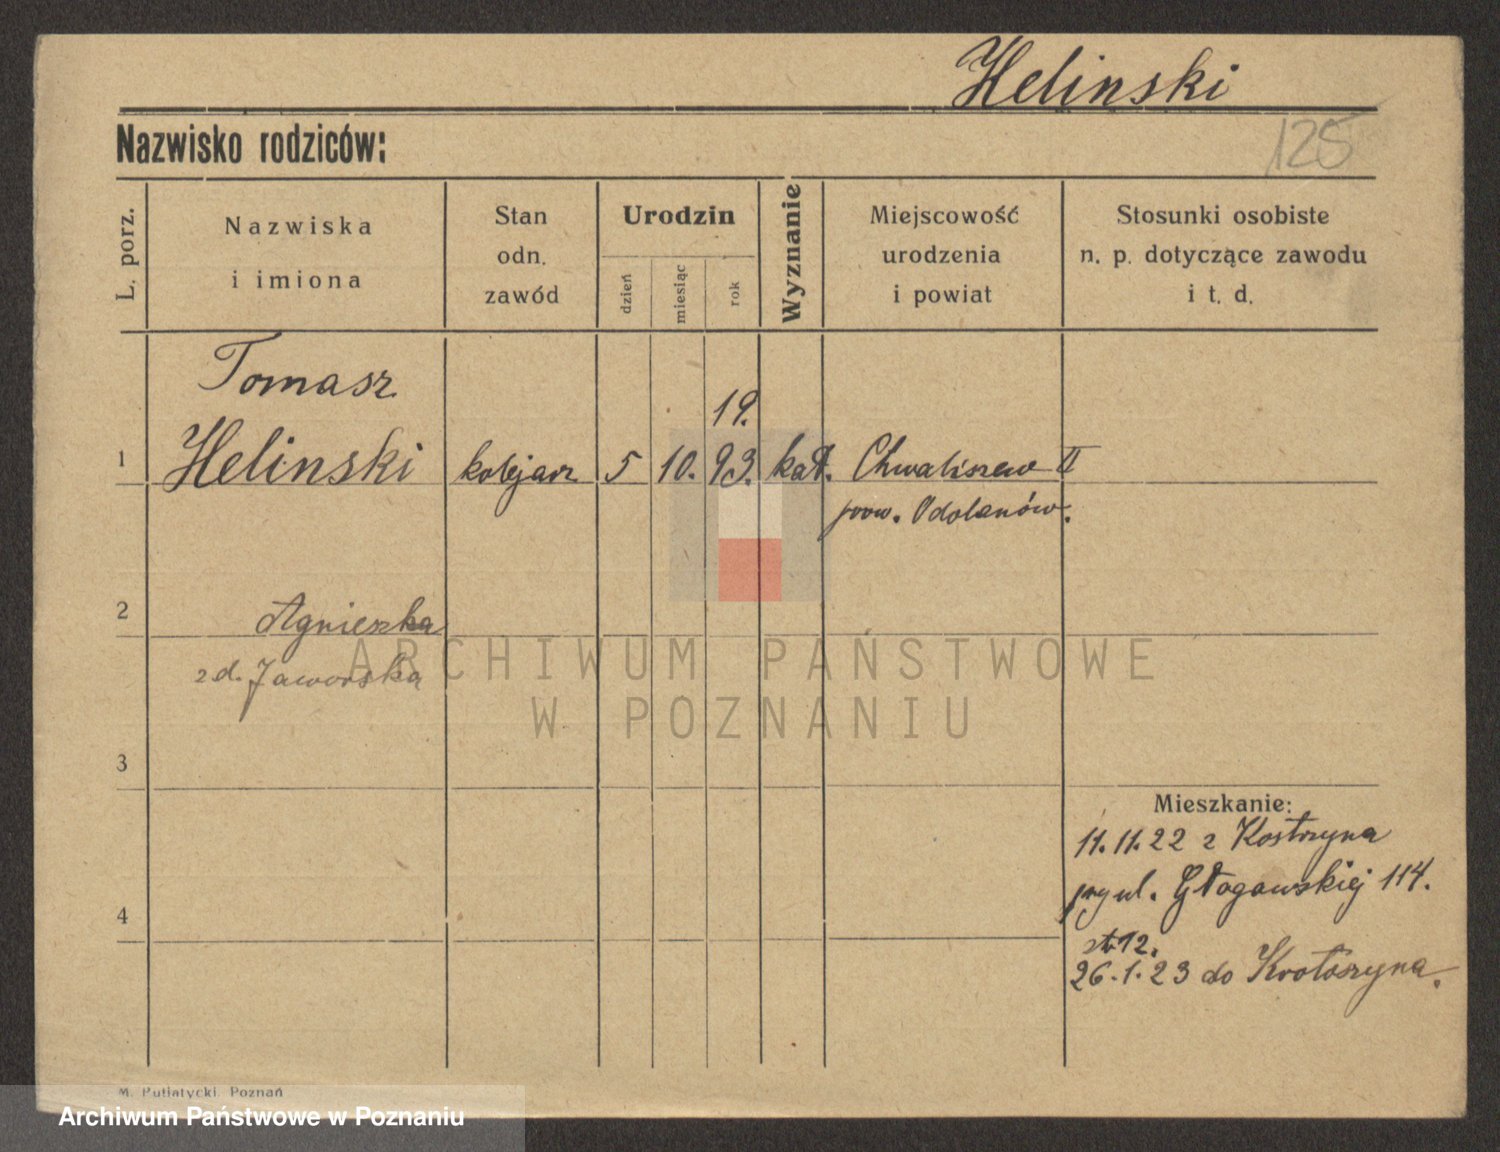 Helinski
Nazwisko rodziców:
125
L. porz.
Nazwiska
i imiona
Stan
odn.
zawód
Urodzin
dzień
miesiąc
rok
Wyznanie
Miejscowość
urodzenia
i powiat
Stosunki osobiste
n. p. dotyczące zawodu
i t. d.
Tomasz
19.
1 Helinski kolejarz 5 10. 93. kat. Chwaliszew II
pow. Odolanów.
2 Agnieszka
z d. Jaworska
ARCHIWUM PAŃSTWOWE
W POZNANIU
3
Mieszkanie:
11.11.22 z Kostrzyna
przy ul. Głogowskiej 114.
4
str 12.
26.1.23 do Krotoszyna.
M. Putiatycki, Poznań
Archiwum Państwowe w Poznaniu